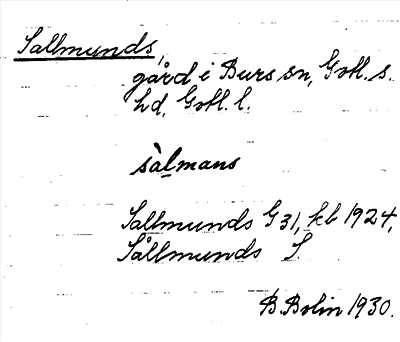 Sallmunds,
gård i Burs sn, Gotl. s.
hd, Gotl. l.
sàlmans
Sallmunds G 31, kb 1924,
Sållmunds S.
B. Bolin 1930.